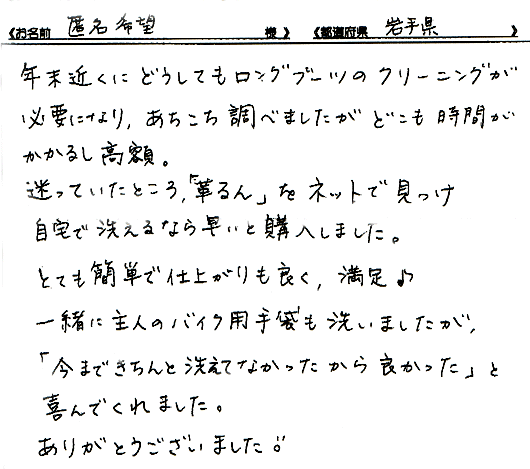 《お名前 匿名希望 様》 《都道府県 岩手県 》
年末近くにどうしてもロングブーツのクリーニングが
必要になり，あちこち調べましたがどこも時間が
かかるし高額。
迷っていたところ，「革るん」をネットで見つけ
自宅で洗えるなら早いと購入しました。
とても簡単で仕上がりも良く，満足♪
一緒に主人のバイク用手袋も洗いましたが，
「今まできちんと洗えてなかったから良かった」と
喜んでくれました。
ありがとうございました!!